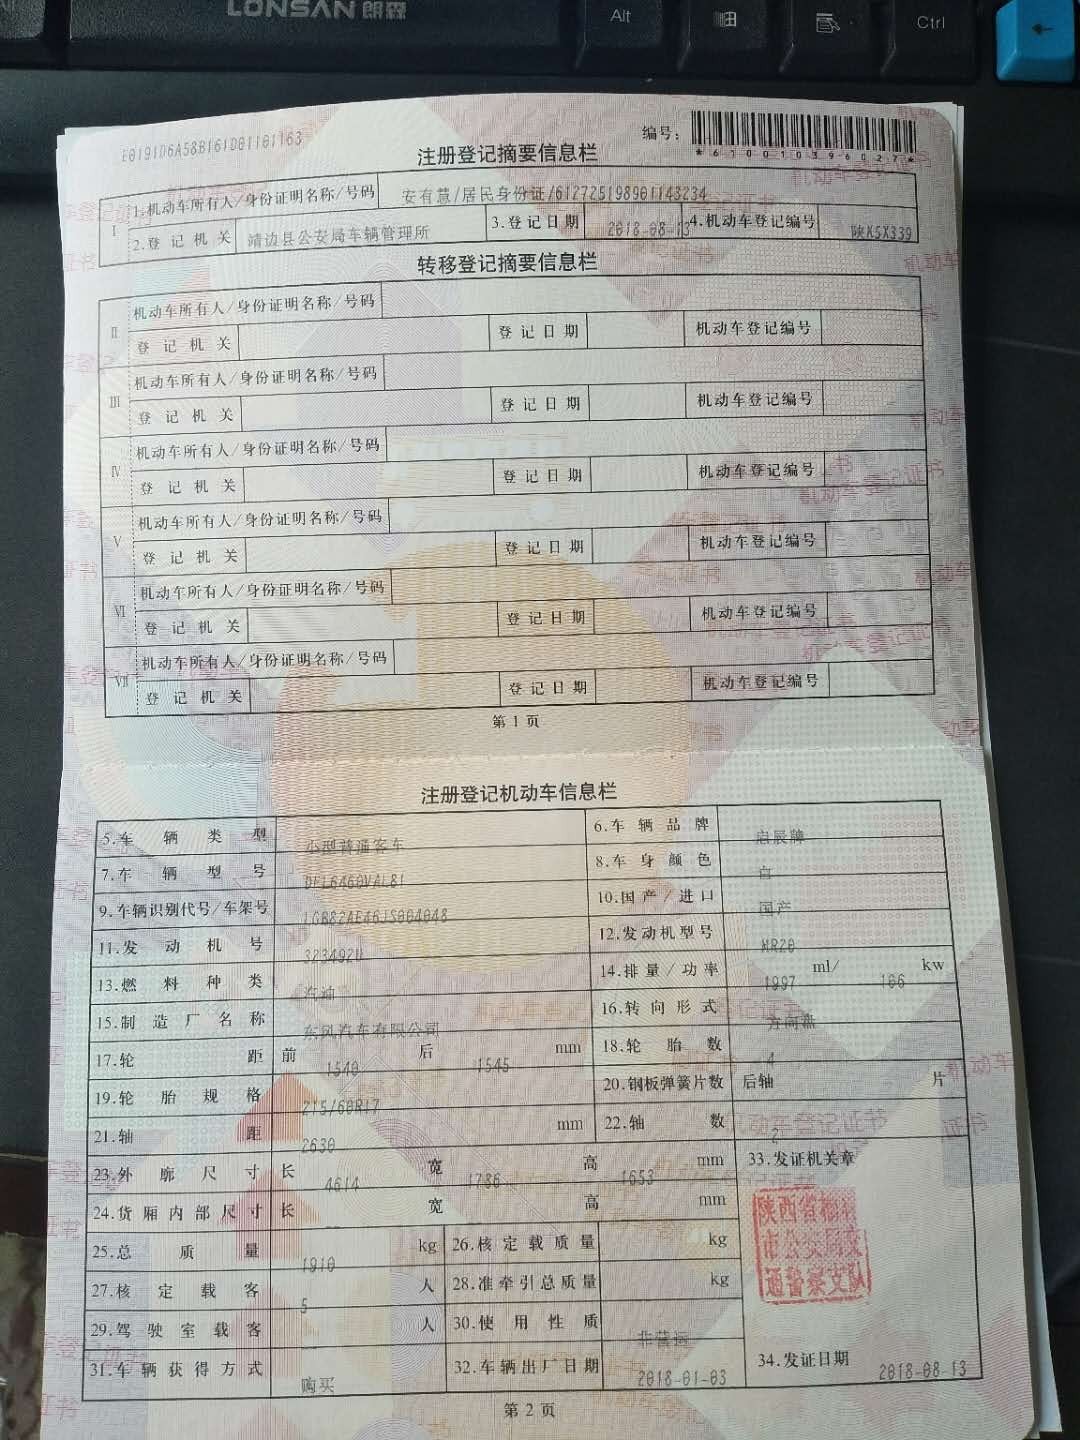 LONSAN 朗森
Alt
Ctrl
E0191D6A58B161D01101163
编号:
*610010396027*
注册登记摘要信息栏
I
1.机动车所有人/身份证明名称/号码 安有慧/居民身份证/612725198901143234
2.登记机关 靖边县公安局车辆管理所 3.登记日期 2018-08-13 4.机动车登记编号 陕K5X339
转移登记摘要信息栏
II
机动车所有人/身份证明名称/号码
登记机关 登记日期 机动车登记编号
III
机动车所有人/身份证明名称/号码
登记机关 登记日期 机动车登记编号
IV
机动车所有人/身份证明名称/号码
登记机关 登记日期 机动车登记编号
V
机动车所有人/身份证明名称/号码
登记机关 登记日期 机动车登记编号
VI
机动车所有人/身份证明名称/号码
登记机关 登记日期 机动车登记编号
VII
机动车所有人/身份证明名称/号码
登记机关 登记日期 机动车登记编号
第1页
注册登记机动车信息栏
5.车辆类型 小型普通客车 6.车辆品牌 启辰牌
7.车辆型号 DFL6460VALB1 8.车身颜色 白
9.车辆识别代号/车架号 LGB82AE46JS004048 10.国产/进口 国产
11.发动机号 323492U 12.发动机型号 MR20
13.燃料种类 汽油 14.排量/功率 1997 ml/ 106 kw
15.制造厂名称 东风汽车有限公司 16.转向形式 方向盘
17.轮距 前 1540 后 1545 mm 18.轮胎数 4
19.轮胎规格 215/60R17 20.钢板弹簧片数 后轴 片
21.轴距 2630 mm 22.轴数 2
23.外廓尺寸 长 4614 宽 1786 高 1653 mm 33.发证机关章
24.货厢内部尺寸 长 宽 高 mm
陕西省榆林
市公安局交
通警察支队
25.总质量 1910 kg 26.核定载质量 kg
27.核定载客 5 人 28.准牵引总质量 kg
29.驾驶室载客 人 30.使用性质 非营运
31.车辆获得方式 购买 32.车辆出厂日期 2018-01-03 34.发证日期 2018-08-13
第2页